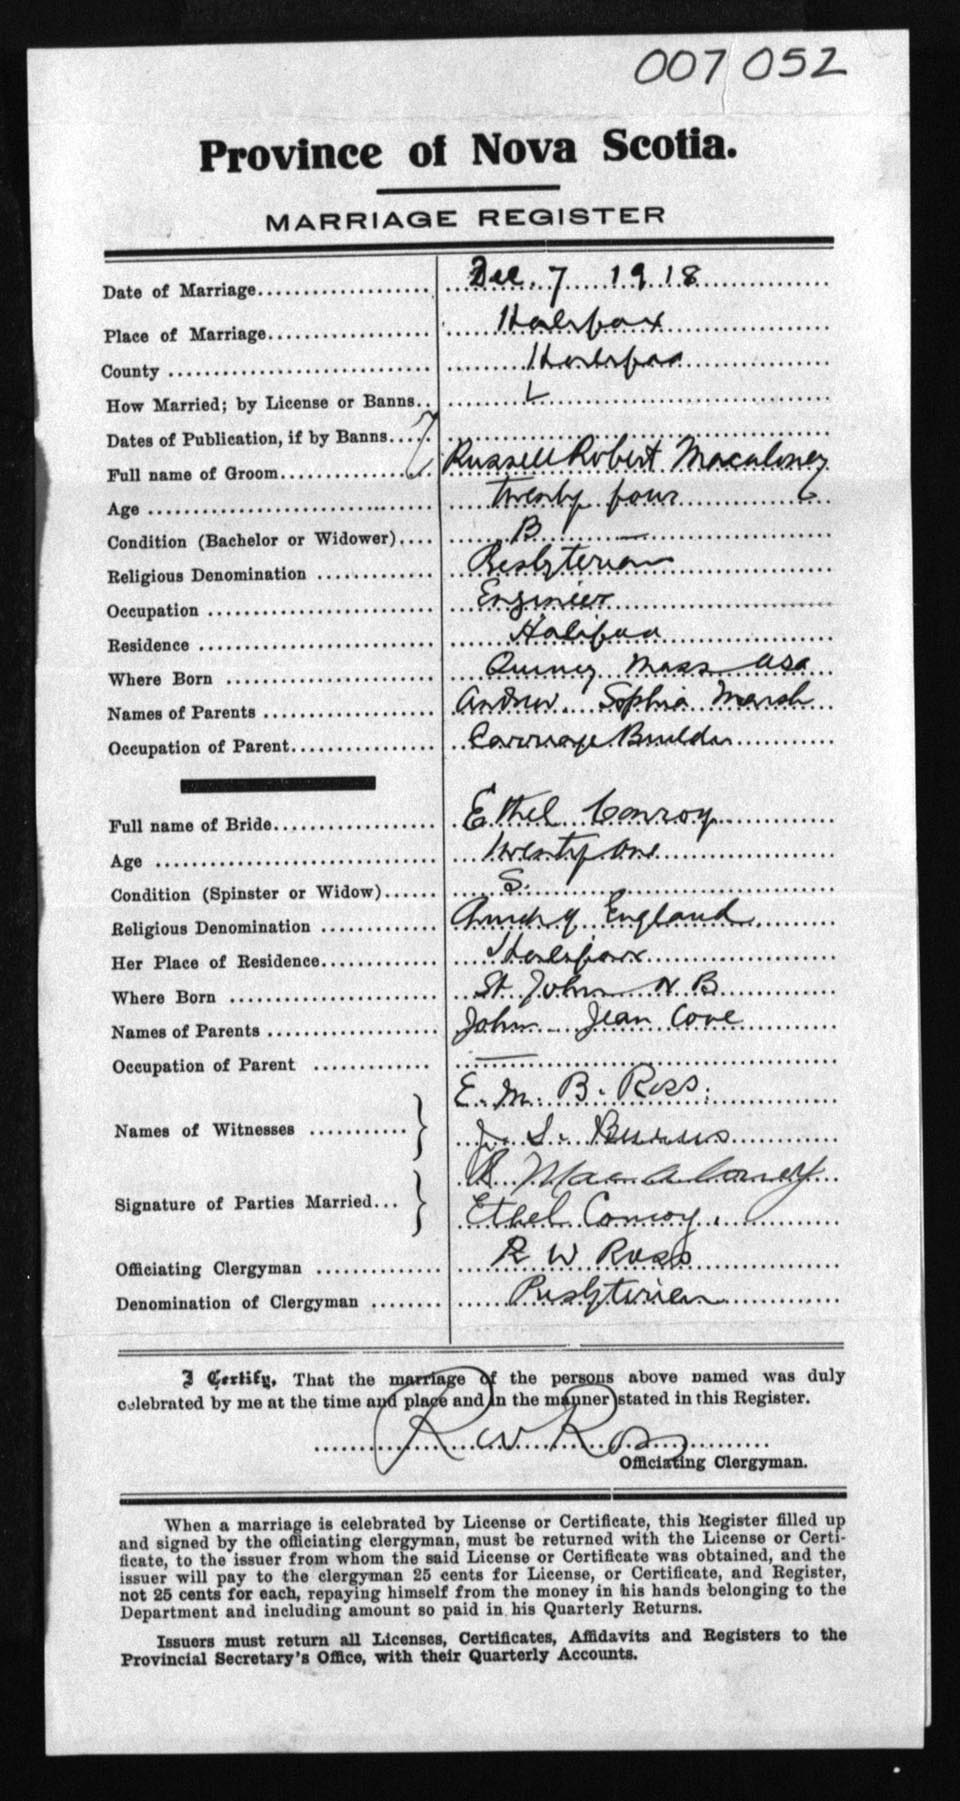 007 052
Province of Nova Scotia.
MARRIAGE REGISTER
Date of Marriage Dec. 7 1918
Place of Marriage Halifax
County Halifax
How Married; by License or Banns L
Dates of Publication, if by Banns
Full name of Groom Russell Robert Macaloney
Age Twenty four
Condition (Bachelor or Widower) B
Religious Denomination Presbyterian
Occupation Engineer
Residence Halifax
Where Born Quincy Mass USA
Names of Parents Andrew. Sophia Marsh
Occupation of Parent Carriage Builder
Full name of Bride Ethel Conroy
Age Twenty one
Condition (Spinster or Widow) S.
Religious Denomination Church of England
Her Place of Residence Halifax
Where Born St John N B
Names of Parents John Jean Cove
Occupation of Parent —
Names of Witnesses E. M. B. Ross.
J. S.
Signature of Parties Married R Macaloney
Ethel Conroy.
Officiating Clergyman R W Ross
Denomination of Clergyman Presbyterian
I Certify, That the marriage of the persons above named was duly
celebrated by me at the time and place and in the manner stated in this Register.
R W Ross
Officiating Clergyman.
When a marriage is celebrated by License or Certificate, this Register filled up
and signed by the officiating clergyman, must be returned with the License or Certi-
ficate, to the issuer from whom the said License or Certificate was obtained, and the
issuer will pay to the clergyman 25 cents for License, or Certificate, and Register,
not 25 cents for each, repaying himself from the money in his hands belonging to the
Department and including amount so paid in his Quarterly Returns.
Issuers must return all Licenses, Certificates, Affidavits and Registers to the
Provincial Secretary's Office, with their Quarterly Accounts.